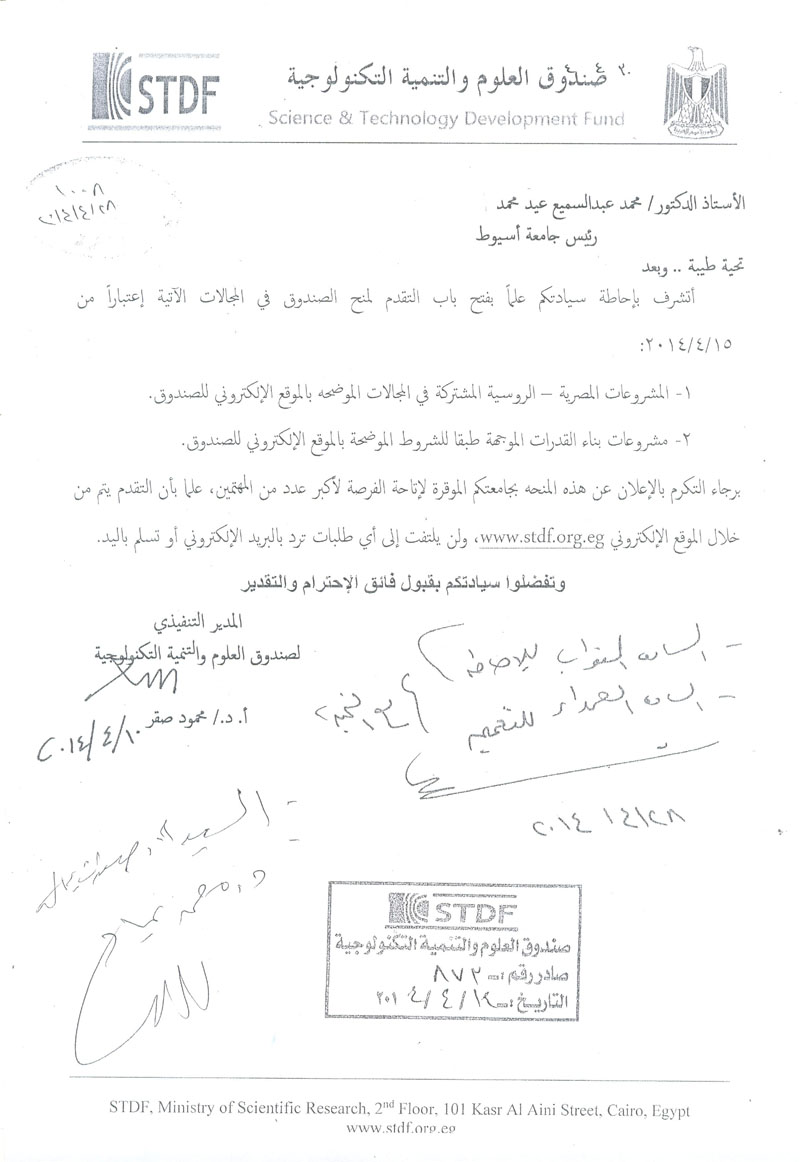 STDF
صندوق العلوم والتنمية التكنولوجية
Science & Technology Development Fund
١٠٠٨
٢٠١٤/٤/٢٨
الأستاذ الدكتور/ محمد عبدالسميع عيد محمد
رئيس جامعة أسيوط
تحية طيبة .. وبعد
أتشرف بإحاطة سيادتكم علماً بفتح باب التقدم لمنح الصندوق في المجالات الآتية إعتباراً من
٢٠١٤/٤/١٥:
١- المشروعات المصرية – الروسية المشتركة في المجالات الموضحه بالموقع الإلكتروني للصندوق.
٢- مشروعات بناء القدرات الموجهة طبقا للشروط الموضحة بالموقع الإلكتروني للصندوق.
برجاء التكرم بالإعلان عن هذه المنحه بجامعتكم الموقرة لإتاحة الفرصة لأكبر عدد من المهتمين، علما بأن التقدم يتم من
خلال الموقع الإلكتروني www.stdf.org.eg، ولن يلتفت إلى أي طلبات ترد بالبريد الإلكتروني أو تسلم باليد.
وتفضلوا سيادتكم بقبول فائق الإحترام والتقدير
المدير التنفيذي
لصندوق العلوم والتنمية التكنولوجية
أ.د./ محمود صقر
٢٠١٤/٤/١٠
- السادة النواب للإحاطة
- السادة العمداء للتعميم
٢٠١٤/٤/٢٨
STDF
صندوق العلوم والتنمية التكنولوجية
صادر رقم :ـ ٨٧٢
التاريخ :ـ
STDF, Ministry of Scientific Research, 2nd Floor, 101 Kasr Al Aini Street, Cairo, Egypt
www.stdf.org.eg